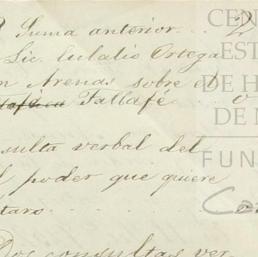 Suma anterior . . . 2
Lic. Eulalio Ortega
n Arenas sobre el
Tallafé o
sulta verbal del
l poder que quiere
taro . . . . .
Dos consultas ver-
CEN
EST
DE H
DE M
FUN
Car